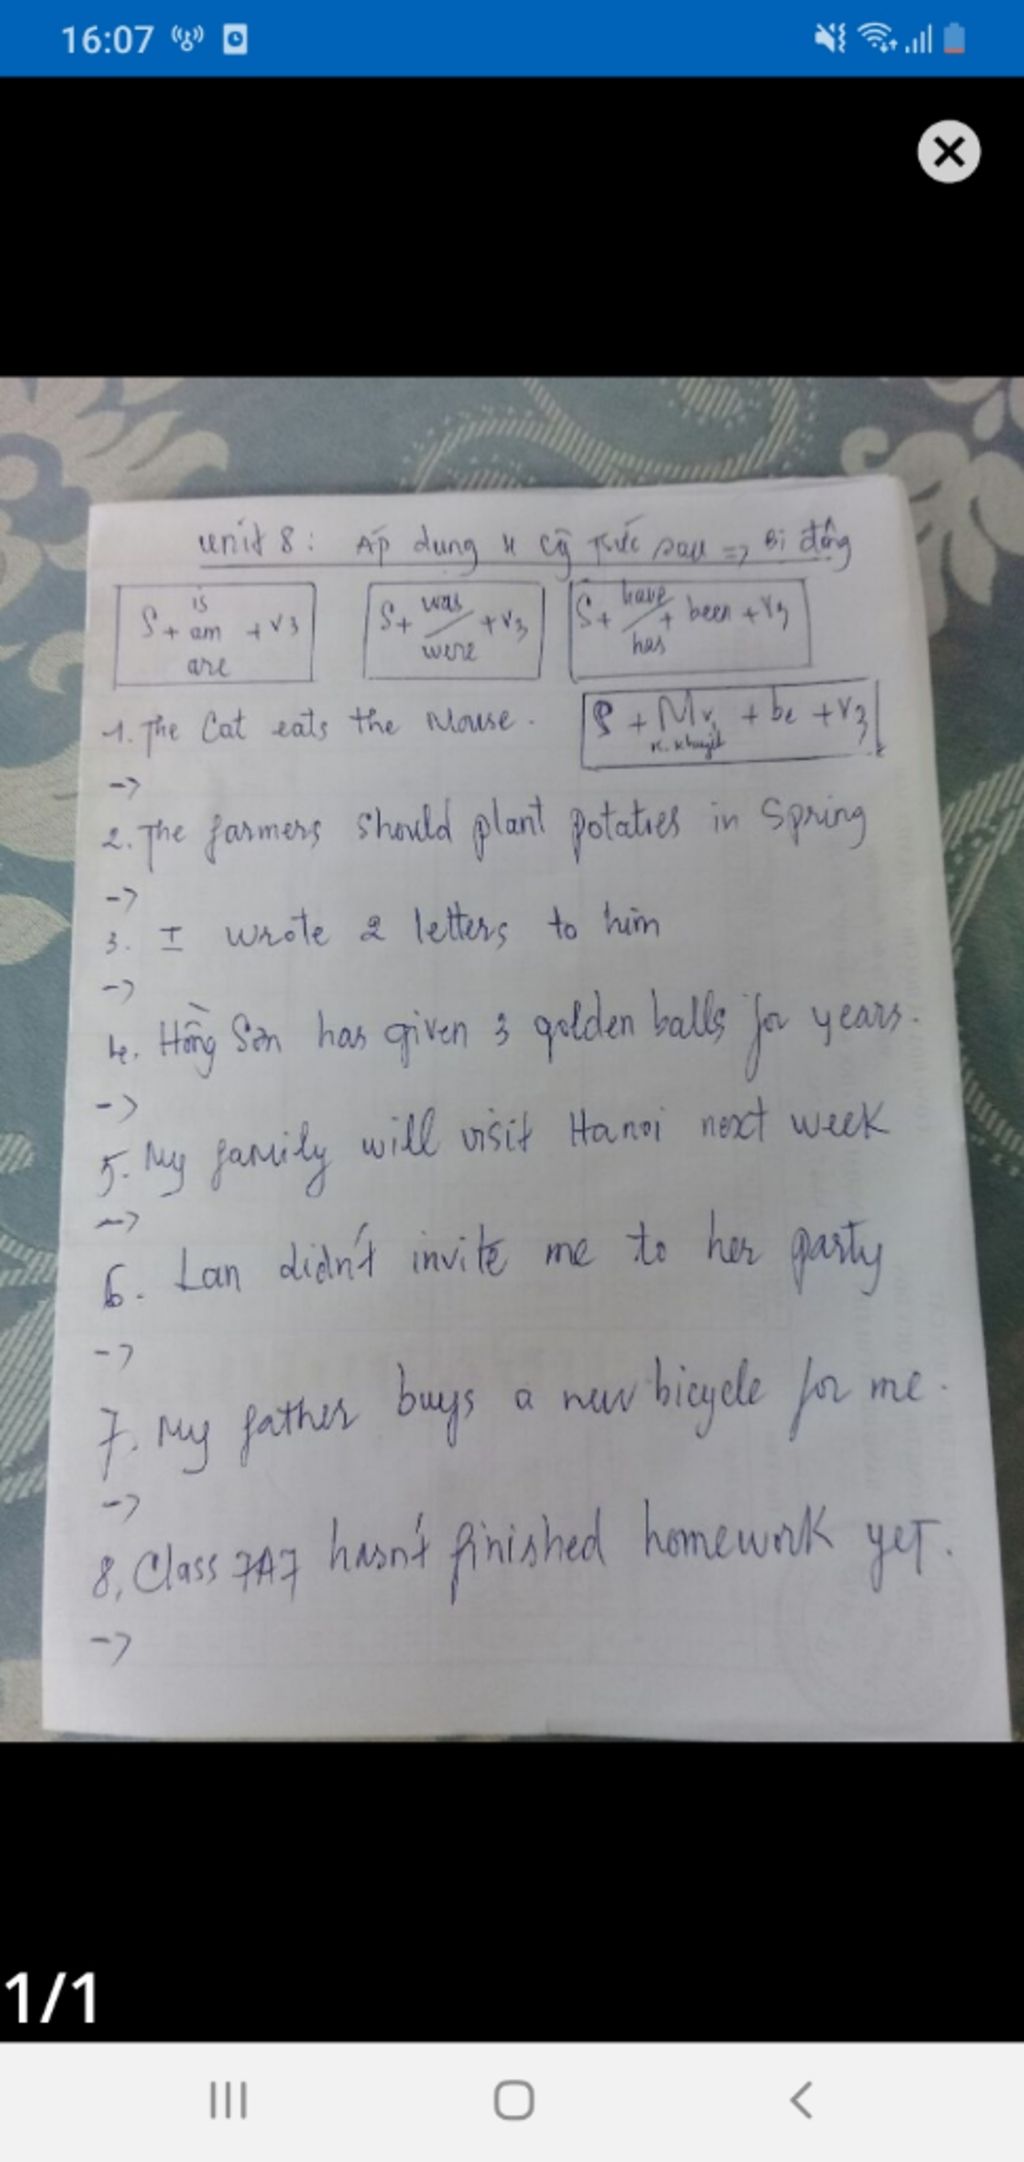 16:07
Unit 8: Áp dụng 4 Cấu trúc sau => Bị động
S + is/am/are + V3
S + was/were + V3
S + have/has + been + V3
S + Mv + be + V3
k. khuyết
1. The Cat eats the Mouse.
->
2. The farmers should plant potatoes in Spring
->
3. I wrote 2 letters to him
->
4. Hồng Sơn has given 3 golden balls for years.
->
5. My family will visit Hanoi next week
->
6. Lan didn't invite me to her party
->
7. My father buys a new bicycle for me.
->
8. Class 7A7 hasn't finished homework yet.
->
1/1